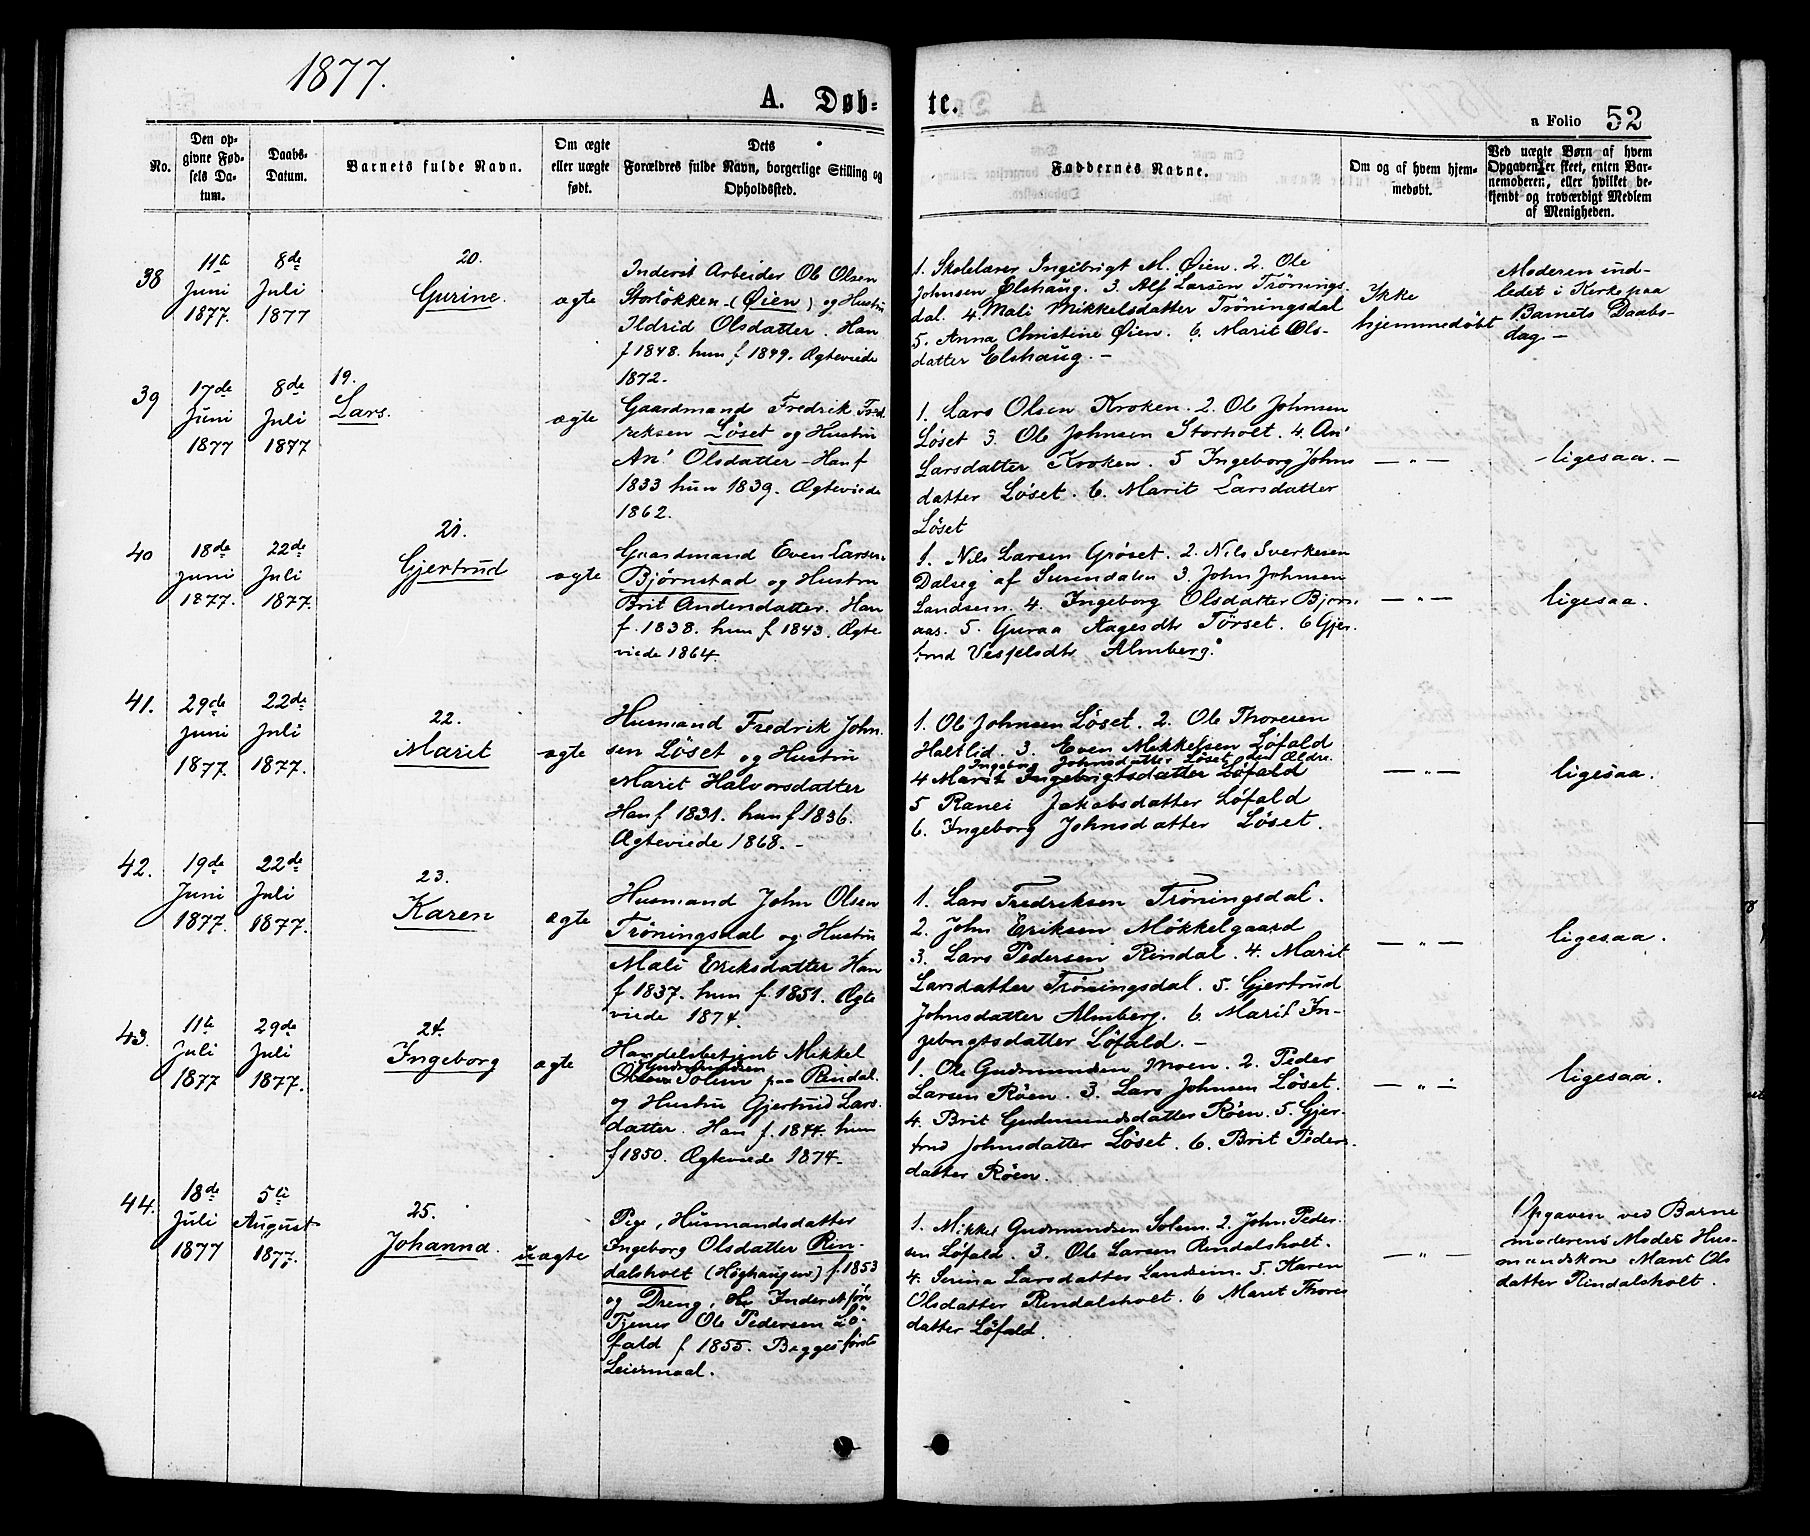 1877.
A. Døb-
te.
a Folio 52
No.
Den op-
givne Fød-
sels Da-
tum.
Daabs-
Datum.
Barnets fulde Navn.
Om ægte
eller uægte
født.
Dets
Forældres fulde Navn, borgerlige Stilling og
Opholdssted.
Faddernes Navne.
Om og af hvem hjem-
medøbt.
Ved uægte Børn af hvem
Opgaven er skeet, enten Bar-
nemoderen, eller hvilket be-
kjendt og troværdigt Medlem
af Menigheden.
38
11te
Juni
1877.
8de
Juli
1877
20.
Gurine.
ægte
Inderst Arbeider Ole Olsen
Storløkken (Øien) og Hustru
Ildrid Olsdatter. Han
f 1848. hun f 1849. Ægteviede
1872.
1. Skolelærer Ingebrigt M. Øien. 2. Ole
Johnsen Elshaug. 3. Alf Larsen Trönings-
dal. 4. Mali Mikkelsdatter Tröningsdal
5. Anna Christine Øien. 6. Marit Ols-
datter Elshaug. -
Ikke
hjemmedøbt
Moderen ind-
ledet i Kirke paa
Barnets Daabs-
dag. -
39
17de
Juni
1877
8de
Juli
1877
19.
Lars.
ægte
Gaardmand Fredrik Fred-
reksen Löset og Hustru
An' Olsdatter - Han f
1833 hun 1839. Ægteviede
1862.
1. Lars Olsen Kroken. 2. Ole Johnsen
Löset 3. Ole Johnsen Storholt. 4. An'
Larsdatter Kroken. 5 Ingeborg Johns
datter Löset. 6. Marit Larsdatter
Löset
— " —
- ligesaa. -
40
18de
Juni
1877.
22de
Juli
1877.
21.
Gjertrud
ægte
Gaardmand Even Larsen
Bjørnstad og Hustru
Brit Andersdatter. Han
f. 1838. hun f 1843. Ægte
viede 1864.
1. Nils Larsen Gröset. 2. Nils Sverkesen
Dalseg af Surendalen 3. John Johnsen
Landsem. 4. Ingeborg Olsdatter Bjørn-
aas. 5. Guraa Aagesdtr Törset. 6 Gjer-
trud Vesselsdtr Almberg.
— " —
ligesaa.
41.
29de
Juni
1877.
22de
Juli
1877.
22.
Marit
ægte
Husmand Fredrik John-
sen Löset og Hustru
Marit Halvorsdatter
Han f 1831. hun f 1836.
Ægteviede 1868. -
1. Ole Johnsen Löset. 2. Ole Thoresen
Haltlid. 3. Even Mikkelsen Löfald
Ingeborg Johnsdatter Löset den Ældre.
4 Marit Ingebrigtsdatter Löfald
5 Ranei Jakobsdatter Löfald
6. Ingeborg Johnsdatter Löset.
— " —
ligesaa.
42.
19de
Juni
1877.
22de
Juli
1877.
23.
Karen
ægte
Husmand John Olsen
Tröningsdal og Hustru
Mali Eriksdatter Han
f 1837. hun f. 1851. Ægte
viede 1874.
1. Lars Fredriksen Tröningsdal.
2. John Eriksen Mökkelgaard
3. Lars Pedersen Rindal. 4. Marit
Larsdatter Tröningsdal. 5. Gjertrud
Johnsdatter Almberg. 6. Marit In-
gebrigtsdatter Löfald. -
— " —
ligesaa.
43.
11te
Juli
1877
29de
Juli
1877.
24.
Ingeborg
ægte
Handelsbetjent Mikkel
Gudmundsen
Olsen Solem paa Rindal.
og Hustru Gjertrud Lars-
datter. Han f. 1844. hun
f 1850. Ægteviede 1874.
1. Ole Gudmundsen Moen. 2. Peder
Larsen Röen. 3. Lars Johnsen Löset.
4. Brit Gudmundsdatter Röen. 5. Gjer-
trud Johnsdatter Löset. 6. Brit Peders-
datter Röen.
— " —
ligesaa.
44.
18de
Juli
1877
5te
August
1877.
25.
Johanna.
uægte
Pige, Husmandsdatter
Ingeborg Olsdatter Rin-
dalsholt (Höghaugen) f. 1853
og Dreng, Inderst søn
Tjener Ole Pedersen Lö-
fald f 1855. Begges første
Leiermaal.
1. Mikkel Gudmundsen Solem. 2. John Peder-
sen Löfald. 3. Ole Larsen Rindalsholt.
4. Serina Larsdatter Landsem. 5. Karen
Olsdatter Rindalsholt. 6 Marit Thores
datter Löfald.
— " —
Opgaven ved Barne
moderens Moder Hus-
mandskone Marit Ols
datter Rindalsholt.